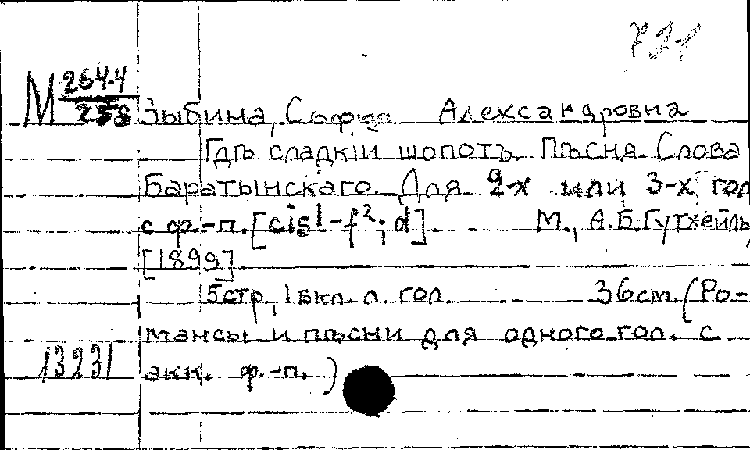 731
М 264-4
258
Зыбина, Софья Александровна
Гдѣ сладкiй шопотъ. Пѣсня. Слова
Баратынскаго. Для 2-х или 3-х гол
с ф.-п. [cis1-f2; d]. М., А.Б. Гутхейль,
[1899].
5стр, 1 вкл. л. гол. 36см. (Ро-
мансы и пѣсни для одного гол. с
акк. ф.-п.)
13231